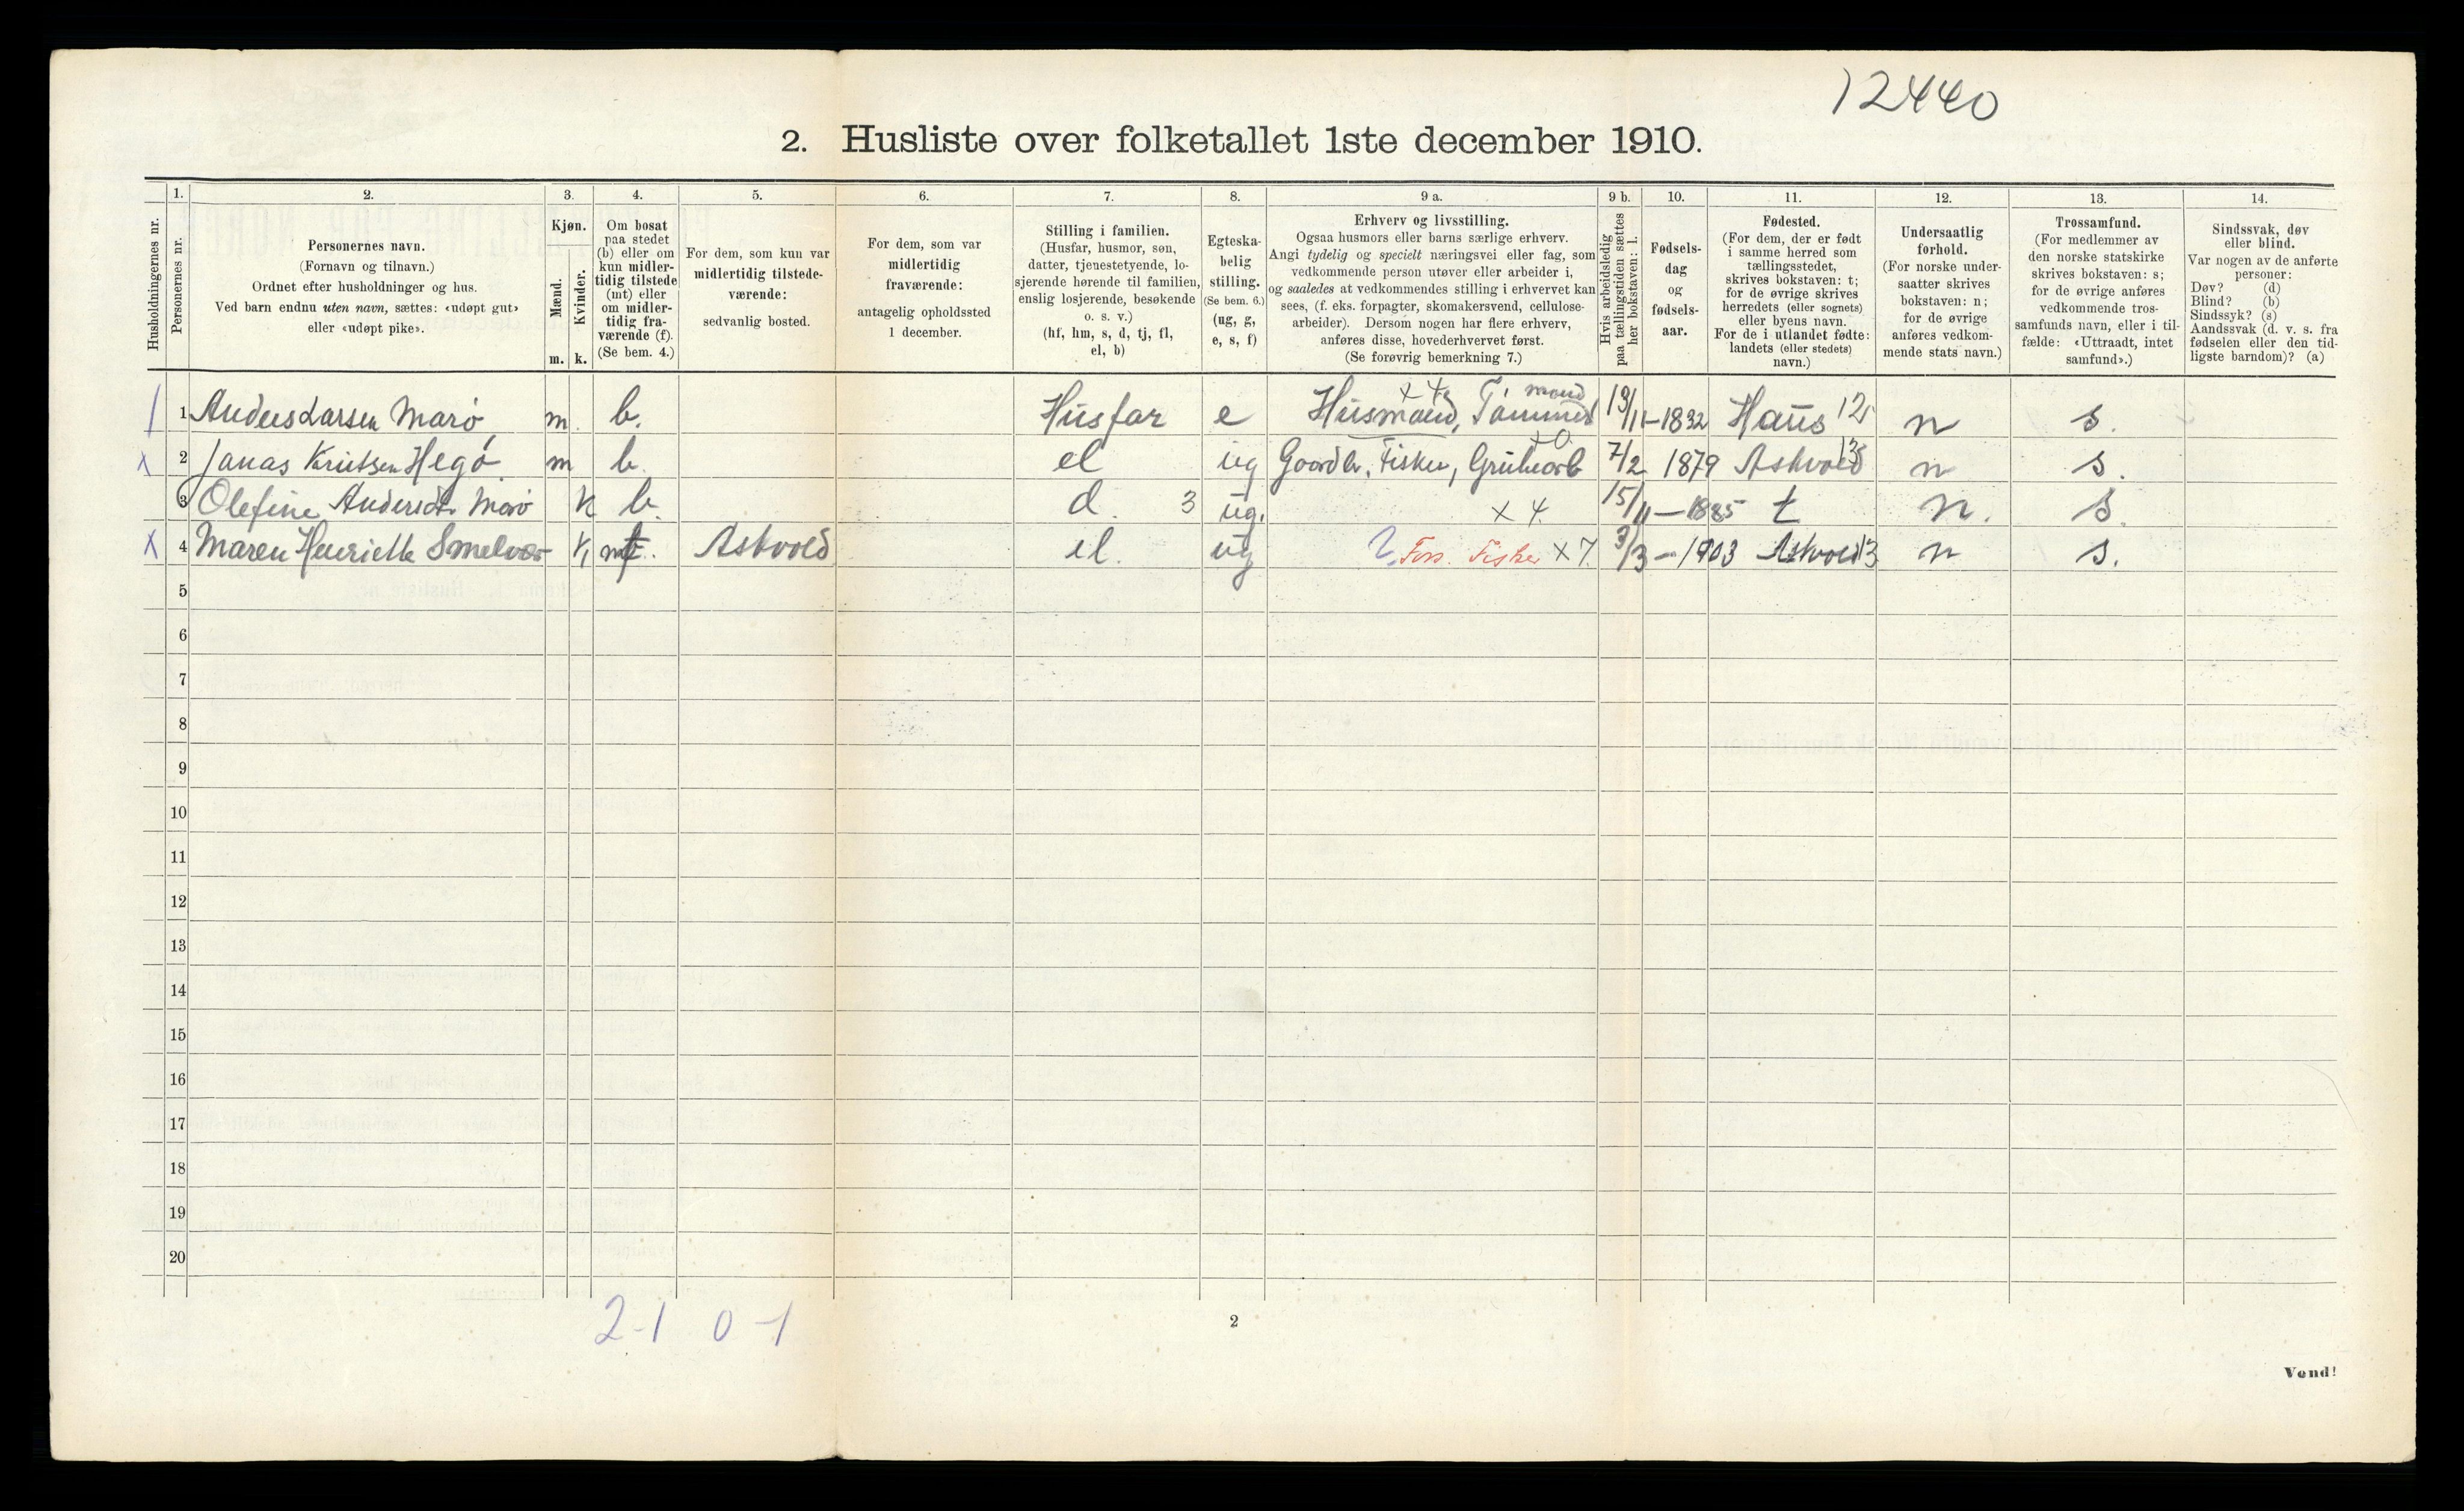 12440
2. Husliste over folketallet 1ste december 1910.
Husholdningernes nr.
1. Personernes nr.
2. Personernes navn.
(Fornavn og tilnavn.)
Ordnet efter husholdninger og hus.
Ved barn endnu uten navn, sættes: «udøpt gut»
eller «udøpt pike».
3. Kjøn.
Mænd. m.
Kvinder. k.
4. Om bosat
paa stedet
(b) eller om
kun midler-
tidig tilstede
(mt) eller
om midler-
tidig fra-
værende (f).
(Se bem. 4.)
5. For dem, som kun var
midlertidig tilstede-
værende:
sedvanlig bosted.
6. For dem, som var
midlertidig
fraværende:
antagelig opholdssted
1 december.
7. Stilling i familien.
(Husfar, husmor, søn,
datter, tjenestetyende, lo-
sjerende hørende til familien,
enslig losjerende, besøkende
o. s. v.)
(hf, hm, s, d, tj, fl,
el, b)
8. Egteska-
belig
stilling.
(Se bem. 6.)
(ug, g,
e, s, f)
9 a. Erhverv og livsstilling.
Ogsaa husmors eller barns særlige erhverv.
Angi tydelig og specielt næringsvei eller fag, som
vedkommende person utøver eller arbeider i,
og saaledes at vedkommendes stilling i erhvervet kan
sees, (f. eks. forpagter, skomakersvend, cellulose-
arbeider). Dersom nogen har flere erhverv,
anføres disse, hovederhvervet først.
(Se forøvrig bemerkning 7.)
9 b. Hvis arbeidsledig
paa tællingstiden sættes
her bokstaven: l.
10. Fødsels-
dag
og
fødsels-
aar.
11. Fødested.
(For dem, der er født
i samme herred som
tællingsstedet,
skrives bokstaven: t;
for de øvrige skrives
herredets (eller sognets)
eller byens navn.
For de i utlandet fødte:
landets (eller stedets)
navn.)
12. Undersaatlig
forhold.
(For norske under-
saatter skrives
bokstaven: n;
for de øvrige
anføres vedkom-
mende stats navn.)
13. Trossamfund.
(For medlemmer av
den norske statskirke
skrives bokstaven: s;
for de øvrige anføres
vedkommende tros-
samfunds navn, eller i til-
fælde: «Uttraadt, intet
samfund».)
14. Sindssvak, døv
eller blind.
Var nogen av de anførte
personer:
Døv? (d)
Blind? (b)
Sindssyk? (s)
Aandssvak (d. v. s. fra
fødselen eller den tid-
ligste barndom)? (a)
1 Anders Larsen Marø m. b. Husfar e Husmand, 13/11-1832 Haus 12 n s.
x 2 Janas Knutsen Hegø m b. el ug Gaardbr. Fisker, Grubearb 7/2 1879 Askvold 13 n s.
3 Olefine Andersdtr Marø k b. d. 3 ug. x 4. 15/11-1885 t n. s.
x 4 Maren Henriette Smelvær k mt. Askvold el. ug Fors. Fisker x 7. 3/3-1903 Askvold 13 n s.
5
6
7
8
9
10
11
12
13
14
15
16
17
18
19
20
2-1 0-1
2
Vend!